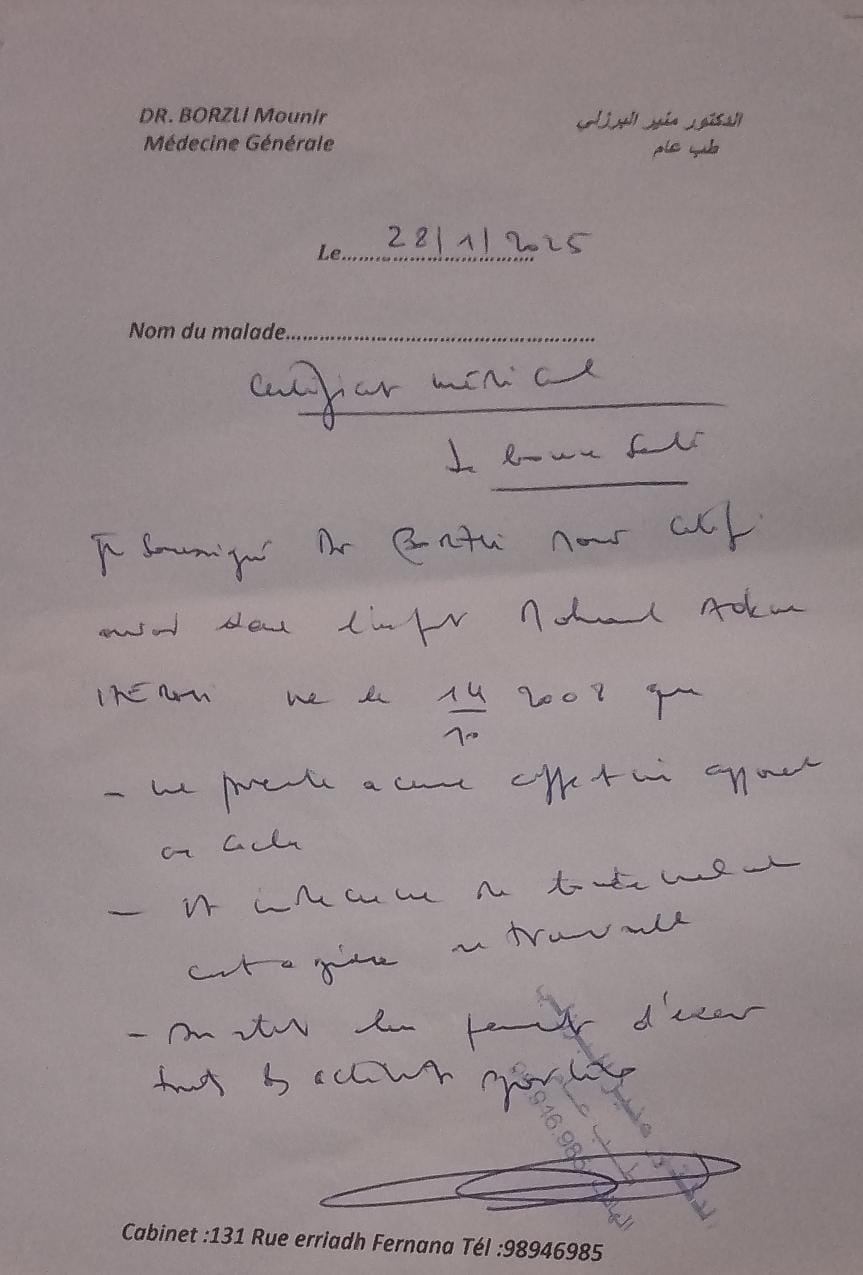 DR. BORZLI Mounir
الدكتور منير البرزلي
Médecine Générale
طب عام
Le 28/1/2025
Nom du malade
Certificat médical
de bonne santé
Je soussigné Dr Borzli Mounir certifie
avoir l'enfant Mohamed
né le 14/10 2008 que
- ne présente aucune affection apparente
- Et indemne de toute maladie
contagieuse
- Son état lui permet d'exercer
toutes les activités sportives
Cabinet :131 Rue erriadh Fernana Tél :98946985